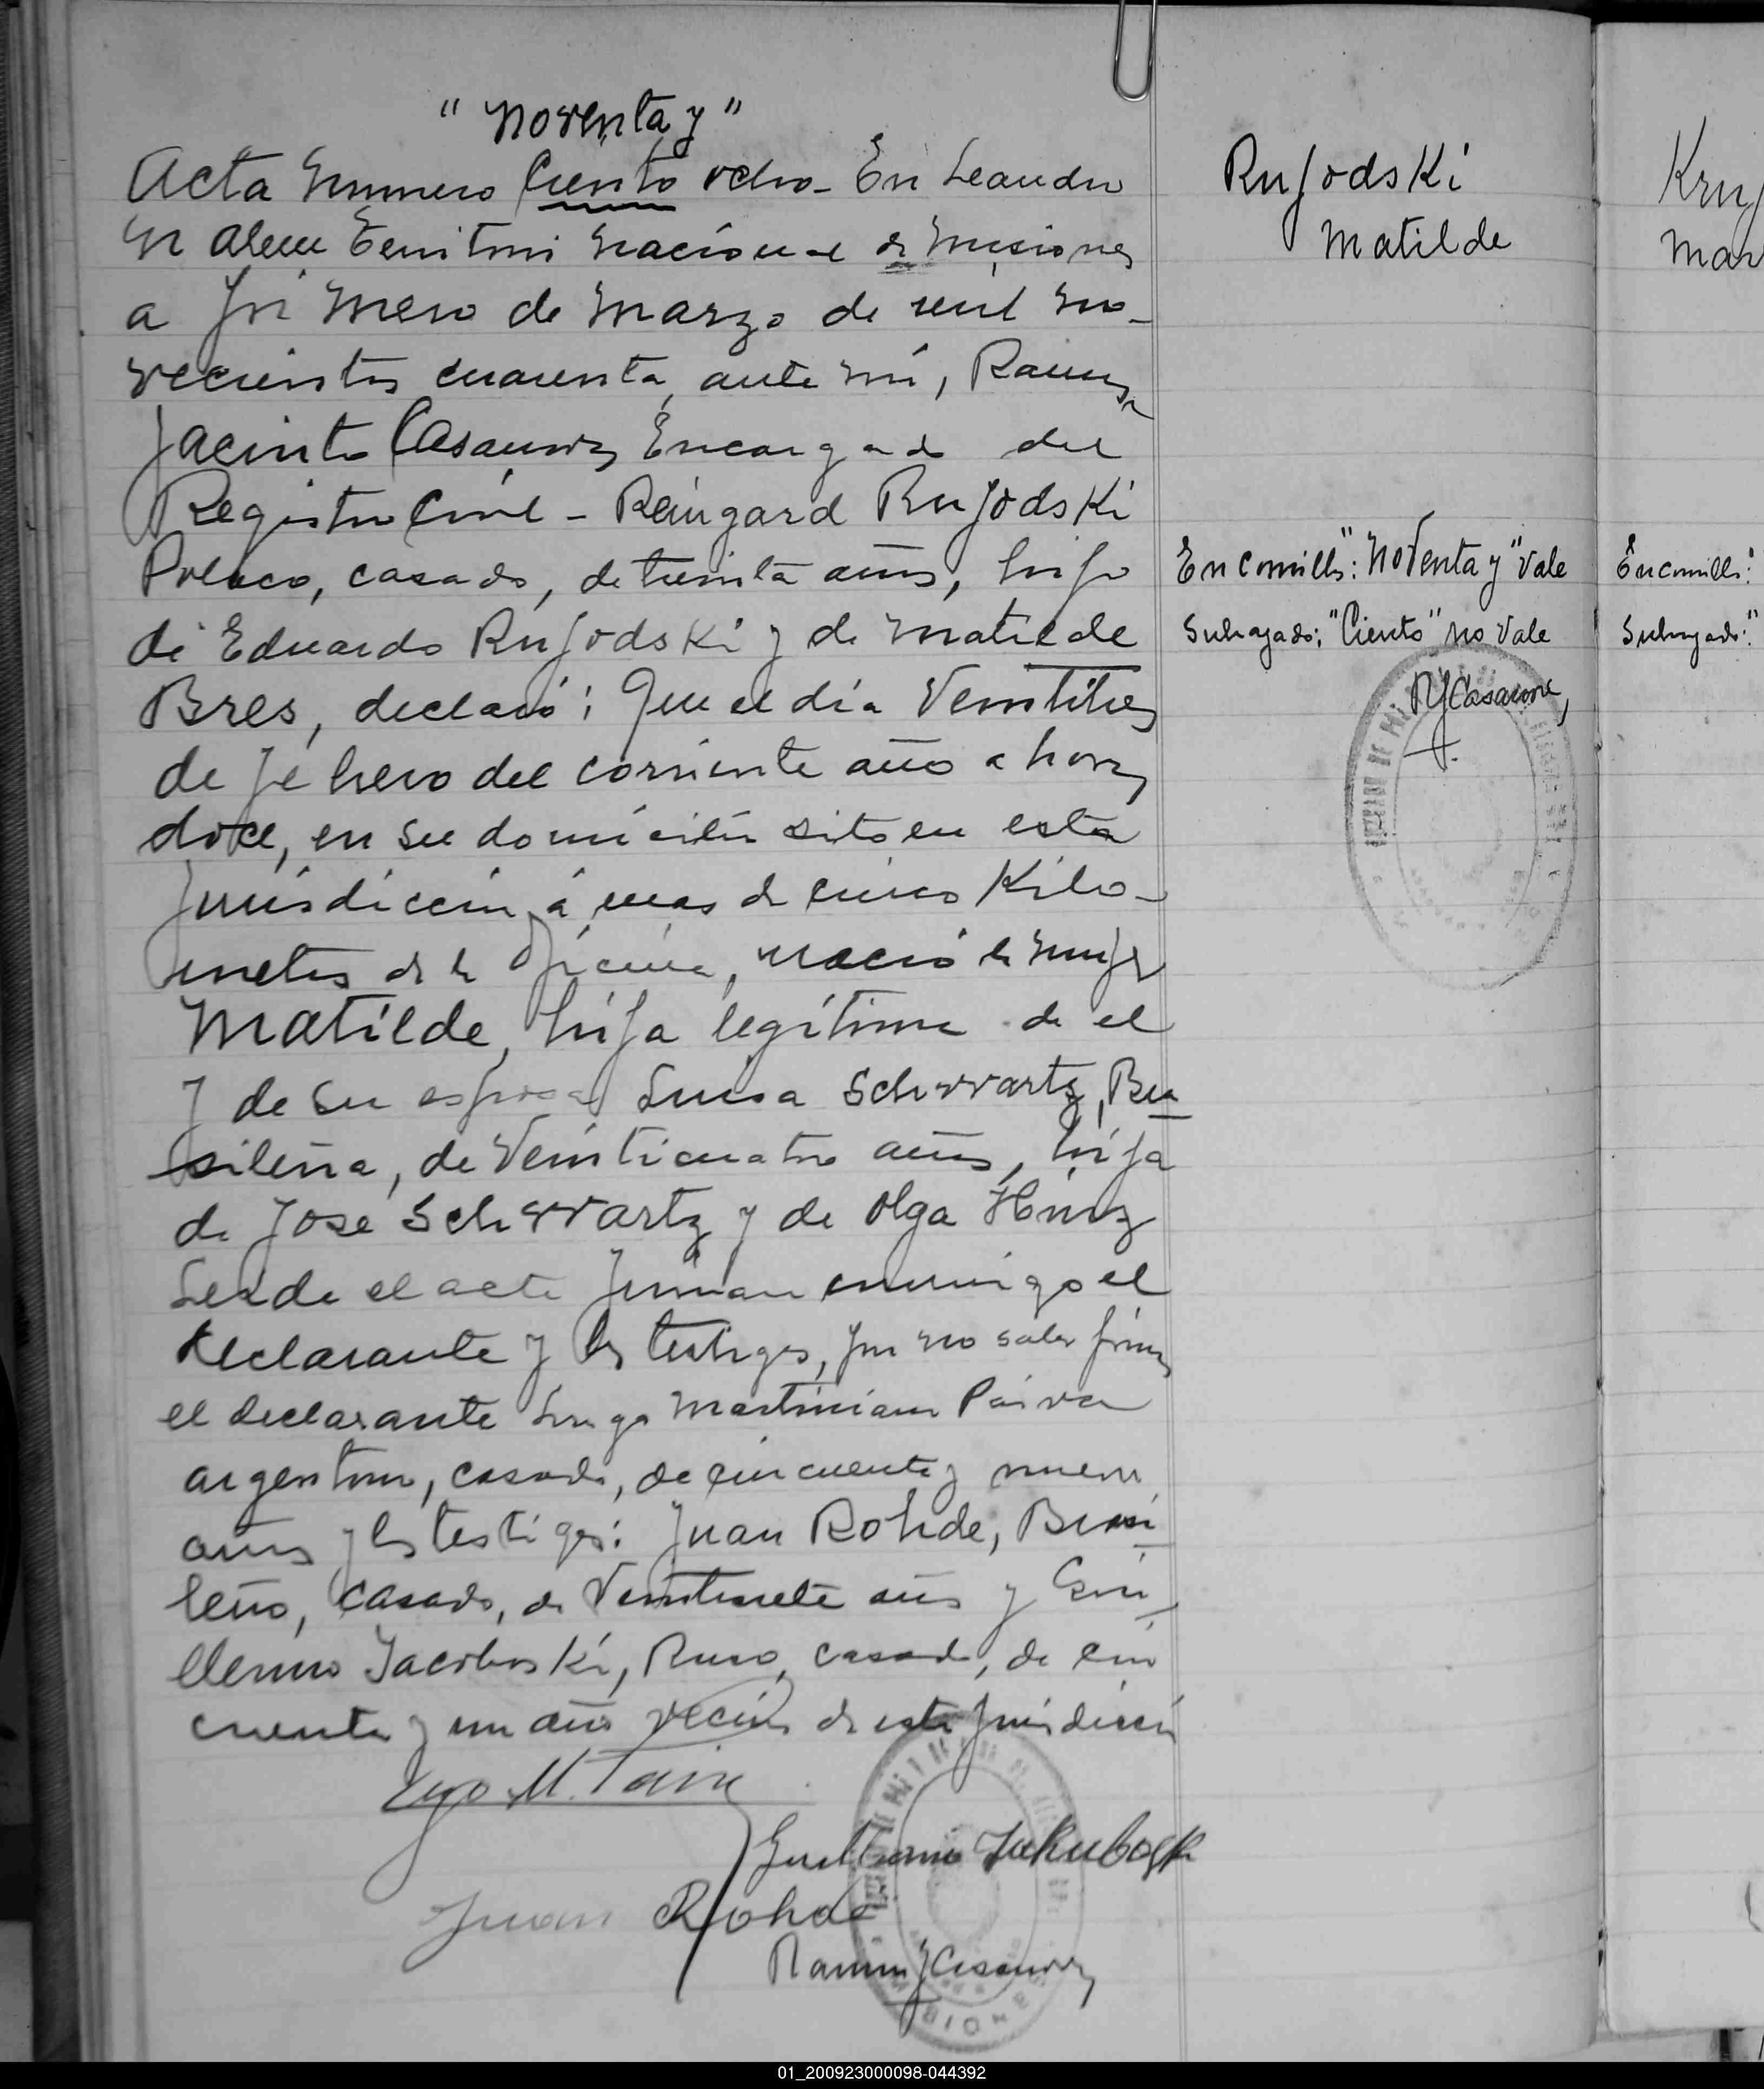 " Noventa y "
Acta Numero Ciento ocho - En Leandro
N Alem Territorio Nacional de Misiones
a primero de Marzo de mil no-
vecientos cuarenta, ante mí, Ramón
Jacinto Casaurrz Encargado del
Registro Civil - Reingard Rufodski
Polaco, casado, de treinta años, hijo
de Eduardo Rufodski y de Matilde
Bres, declaró: Que el día Veintitres
de febrero del corriente año a horas
doce, en su domicilio sito en esta
Jurisdicción, á mas de cinco Kilo-
metros de la Oficina, nació la mujer
Matilde, hija legítima de el
y de su esposa Luisa Schwartz, Bra
sileña, de Veinticuatro años, hija
de José Schwartz y de Olga Hinz
Leida el acta firman conmigo el
declarante y los testigos, por no saber firmar
el declarante Lugo Martiniano Paiva
argentino, casado, de cincuenta y nueve
años y los testigos: Juan Rohde, Brasi
leño, casado, de Veintisiete años y Gui
llermo Jacoboski, Ruso, casado, de cin
cuenta y un años vecinos de esta jurisdicción
M. Paiva
Guillermo Jakubosk
Juan Rohde
Ramon J Casaurrz
Rufodski
Matilde
En comillas: "Noventa y" Vale
Subrayado: "Ciento" no Vale
RJCasaurrz
Kruj
Mar
En comillas: "
Subrayado: "
01_200923000098-044392